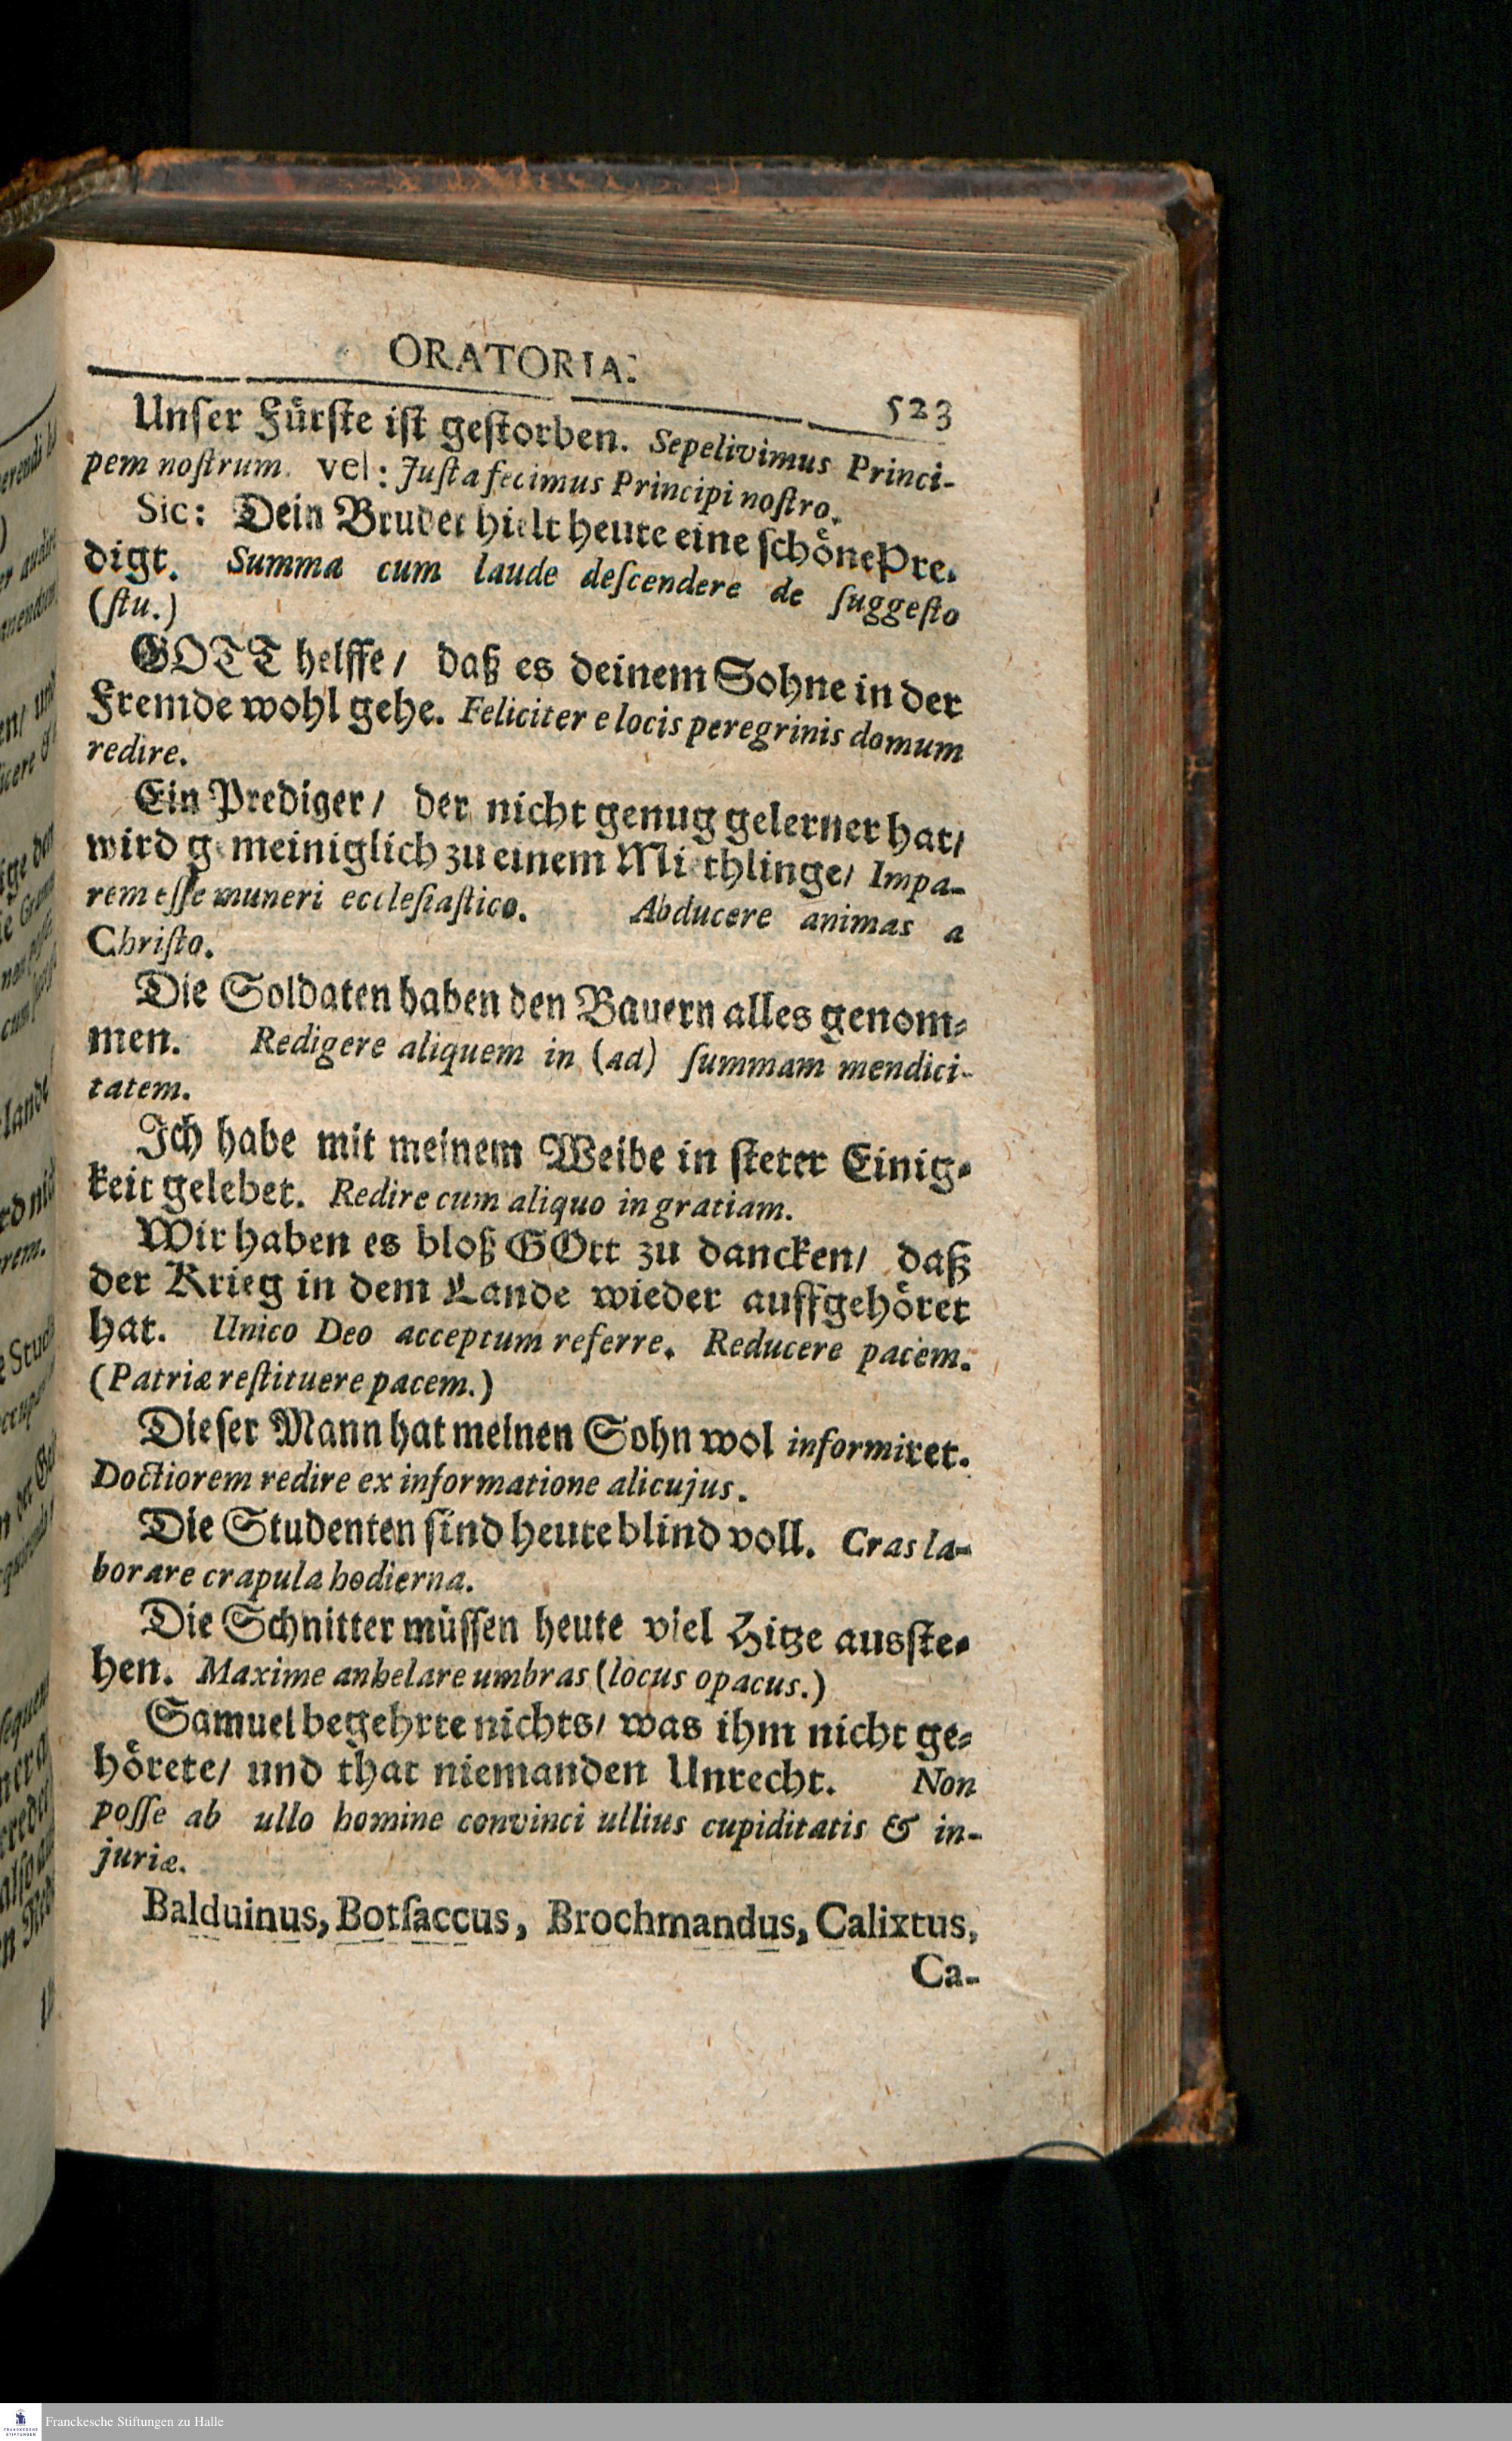 ORATORIA.
523
Unſer Fürſte iſt geſtorben. Sepelivimus Princi-
pem noſtrum. vel: Juſta fecimus Principi noſtro.
Sic: Dein Bruder hielt heute eine ſchöne Pre-
digt. Summa cum laude deſcendere de ſuggeſto
(ſtu.)
GOTT helffe/ daß es deinem Sohne in der
Fremde wohl gehe. Feliciter e locis peregrinis domum
redire.
Ein Prediger/ der nicht genug gelernet hat/
wird gemeiniglich zu einem Miethlinge/ Impa-
rem eſſe muneri eccleſiaſtico. Abducere animas a
Chriſto.
Die Soldaten haben den Bauern alles genom-
men. Redigere aliquem in (ad) ſummam mendici-
tatem.
Ich habe mit meinem Weibe in ſteter Einig-
keit gelebet. Redire cum aliquo in gratiam.
Wir haben es bloß GOtt zu dancken/ daß
der Krieg in dem Lande wieder auffgehöret
hat. Unico Deo acceptum referre. Reducere pacem.
(Patriæ reſtituere pacem.)
Dieſer Mann hat meinen Sohn wol informiret.
Doctiorem redire ex informatione alicujus.
Die Studenten ſind heute blind voll. Cras la-
borare crapula hodierna.
Die Schnitter müſſen heute viel Hitze ausſte-
hen. Maxime anhelare umbras (locus opacus.)
Samuel begehrte nichts/ was ihm nicht ge-
hörete/ und that niemanden Unrecht. Non
poſſe ab ullo homine convinci ullius cupiditatis & in-
juriæ.
Balduinus, Botſaccus, Brochmandus, Calixtus,
Ca-
Franckesche Stiftungen zu Halle